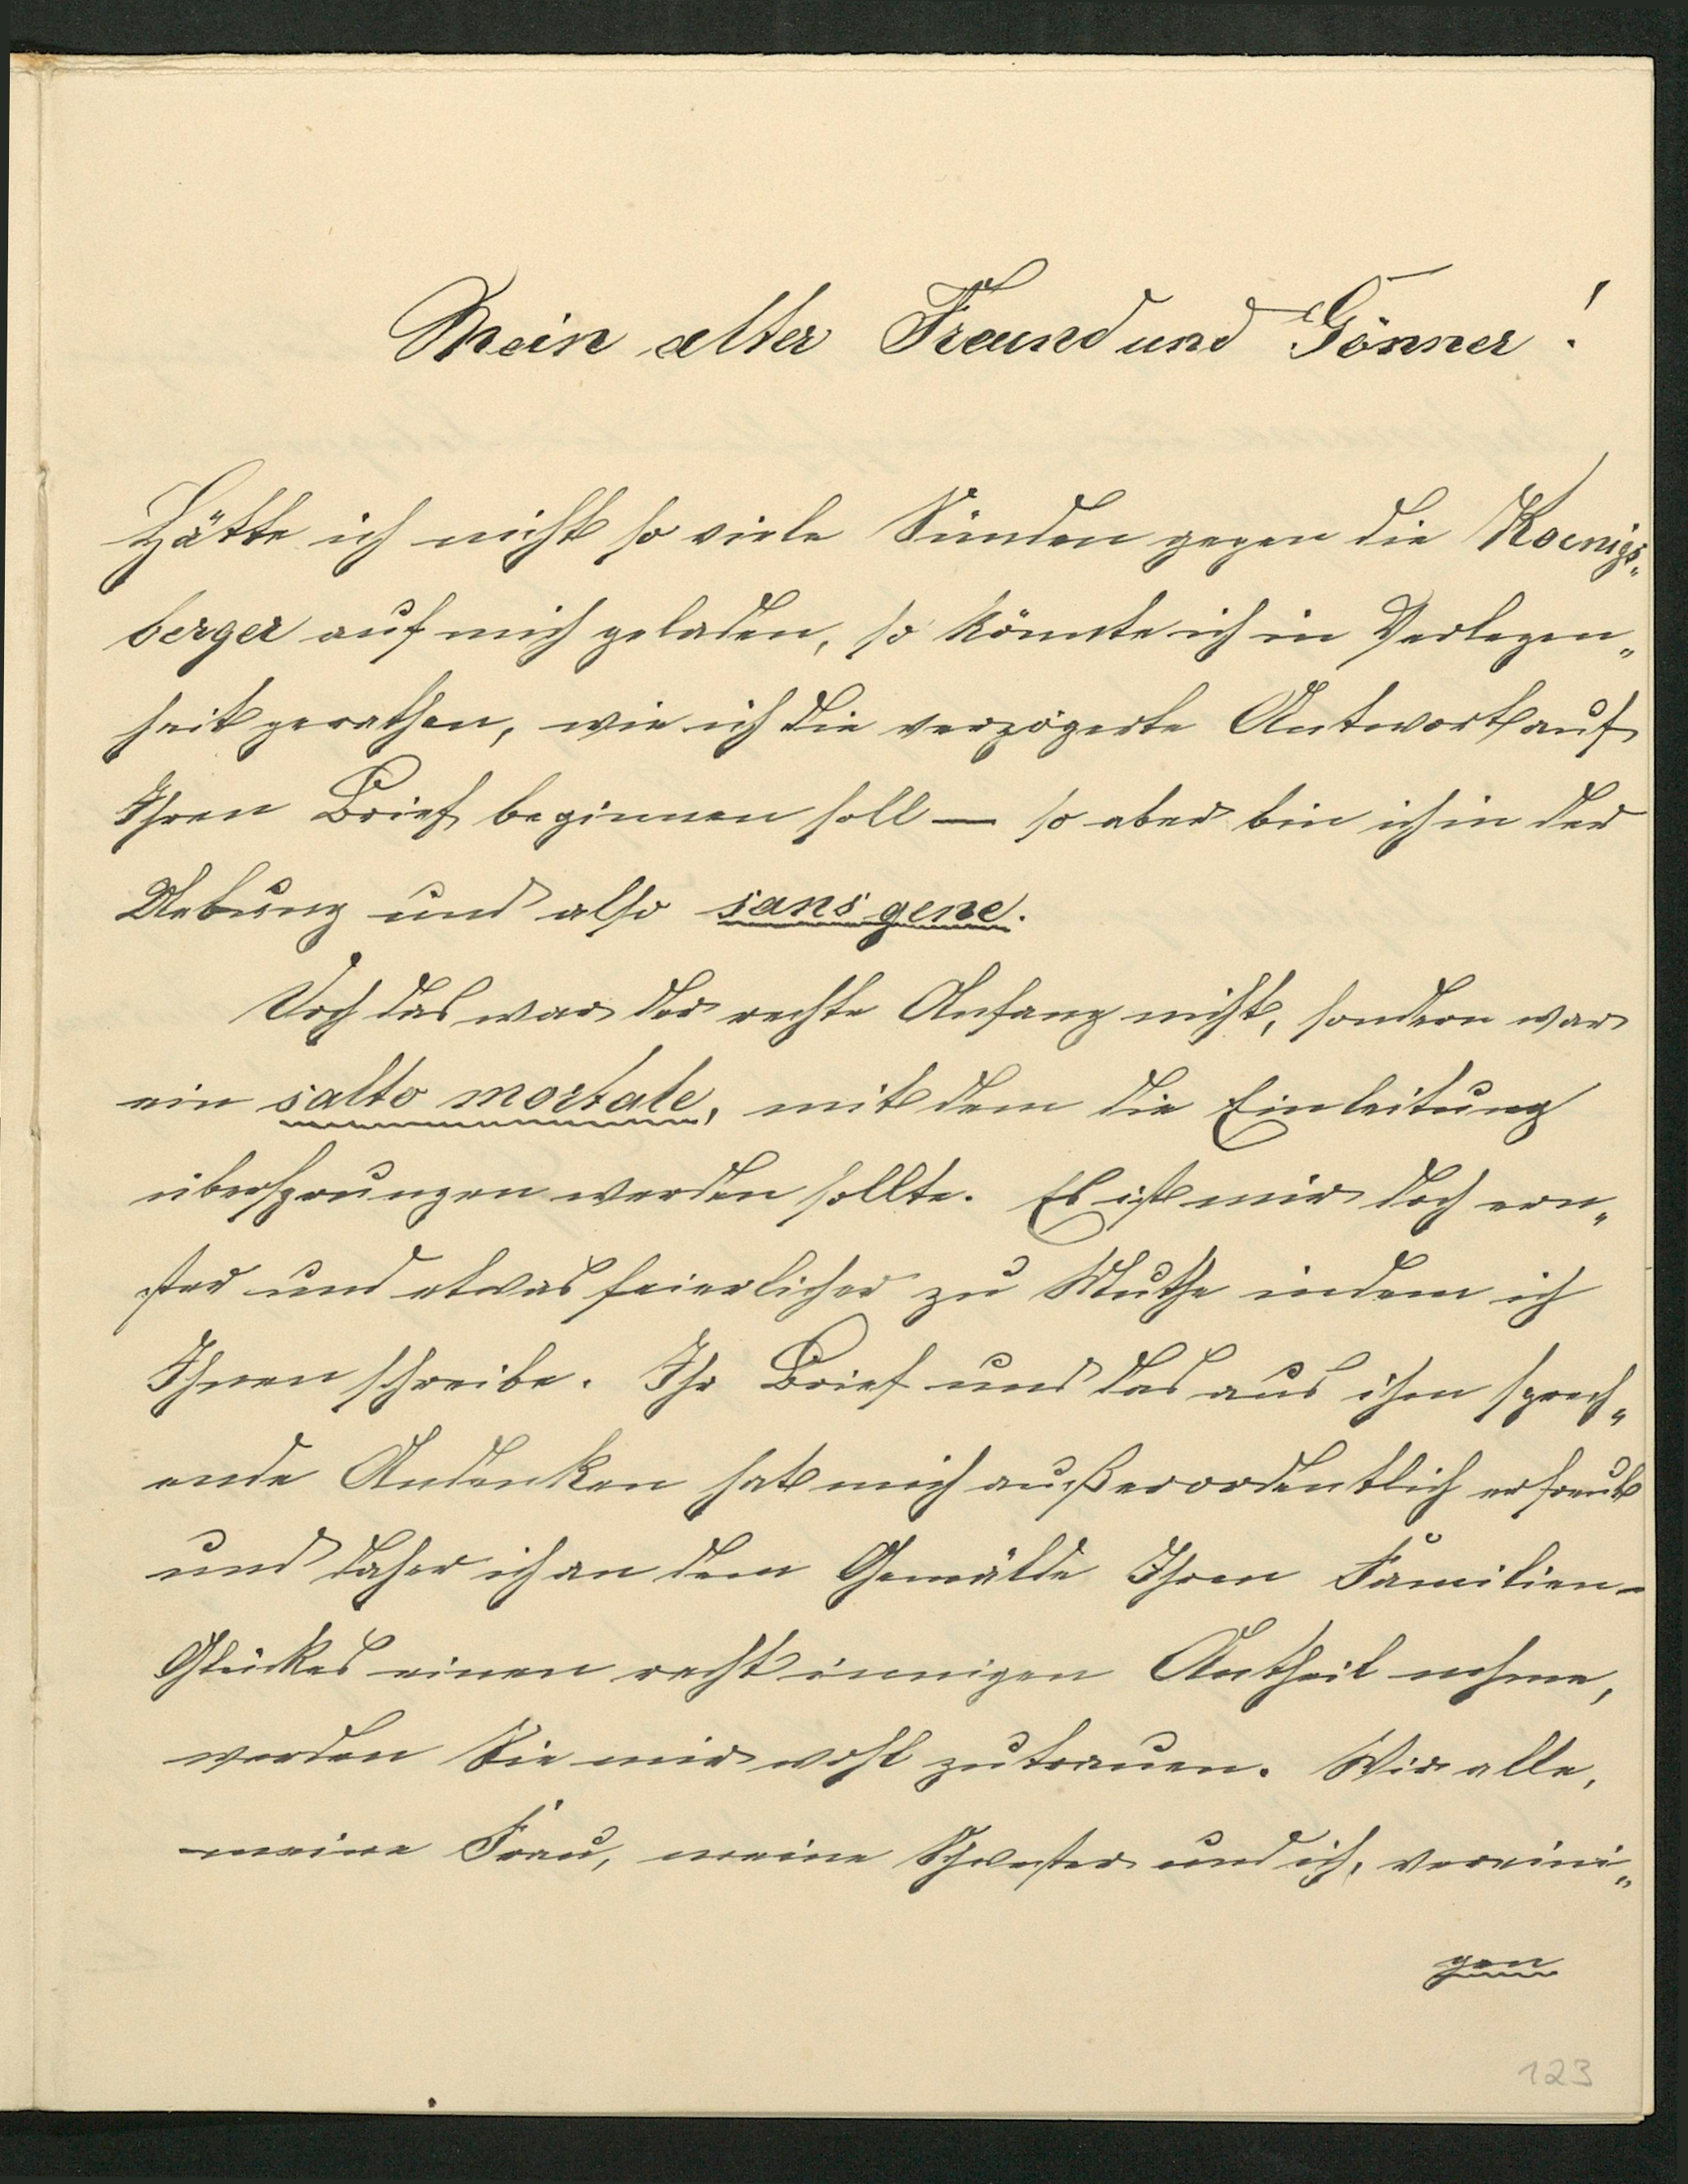 Mein alter Freund und Gönner!
Hätte ich nicht so viele Sünden gegen die Koenigs„
berger auf mich geladen, so könnte ich in Verlegen„
heit gerathen, wie ich die verzögerte Antwort auf
Ihren Brief beginnen soll — so aber bin ich in der
Uebung und also sans gene.
Doch das war der rechte Anfang nicht, sondern war
ein salto mortale, mit dem die Einleitung
übersprungen werden sollte. Es ist mir doch ern„
ster und etwas feierlicher zu Muthe indem ich
Ihnen schreibe. Ihr Brief und das aus ihm sprech„
ende Andenken hat mich außerordentlich erfreut
und daher ich an dem Gemälde Ihren Familien-
Glückes einen recht innigen Antheil nehme,
werden Sie mir wohl zutrauen. Wir alle,
meine Frau, meine Schwester und ich, vereini„
gen
123